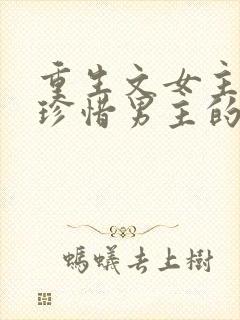 重生文女主
珍惜男主的
蚂蟻去上樹